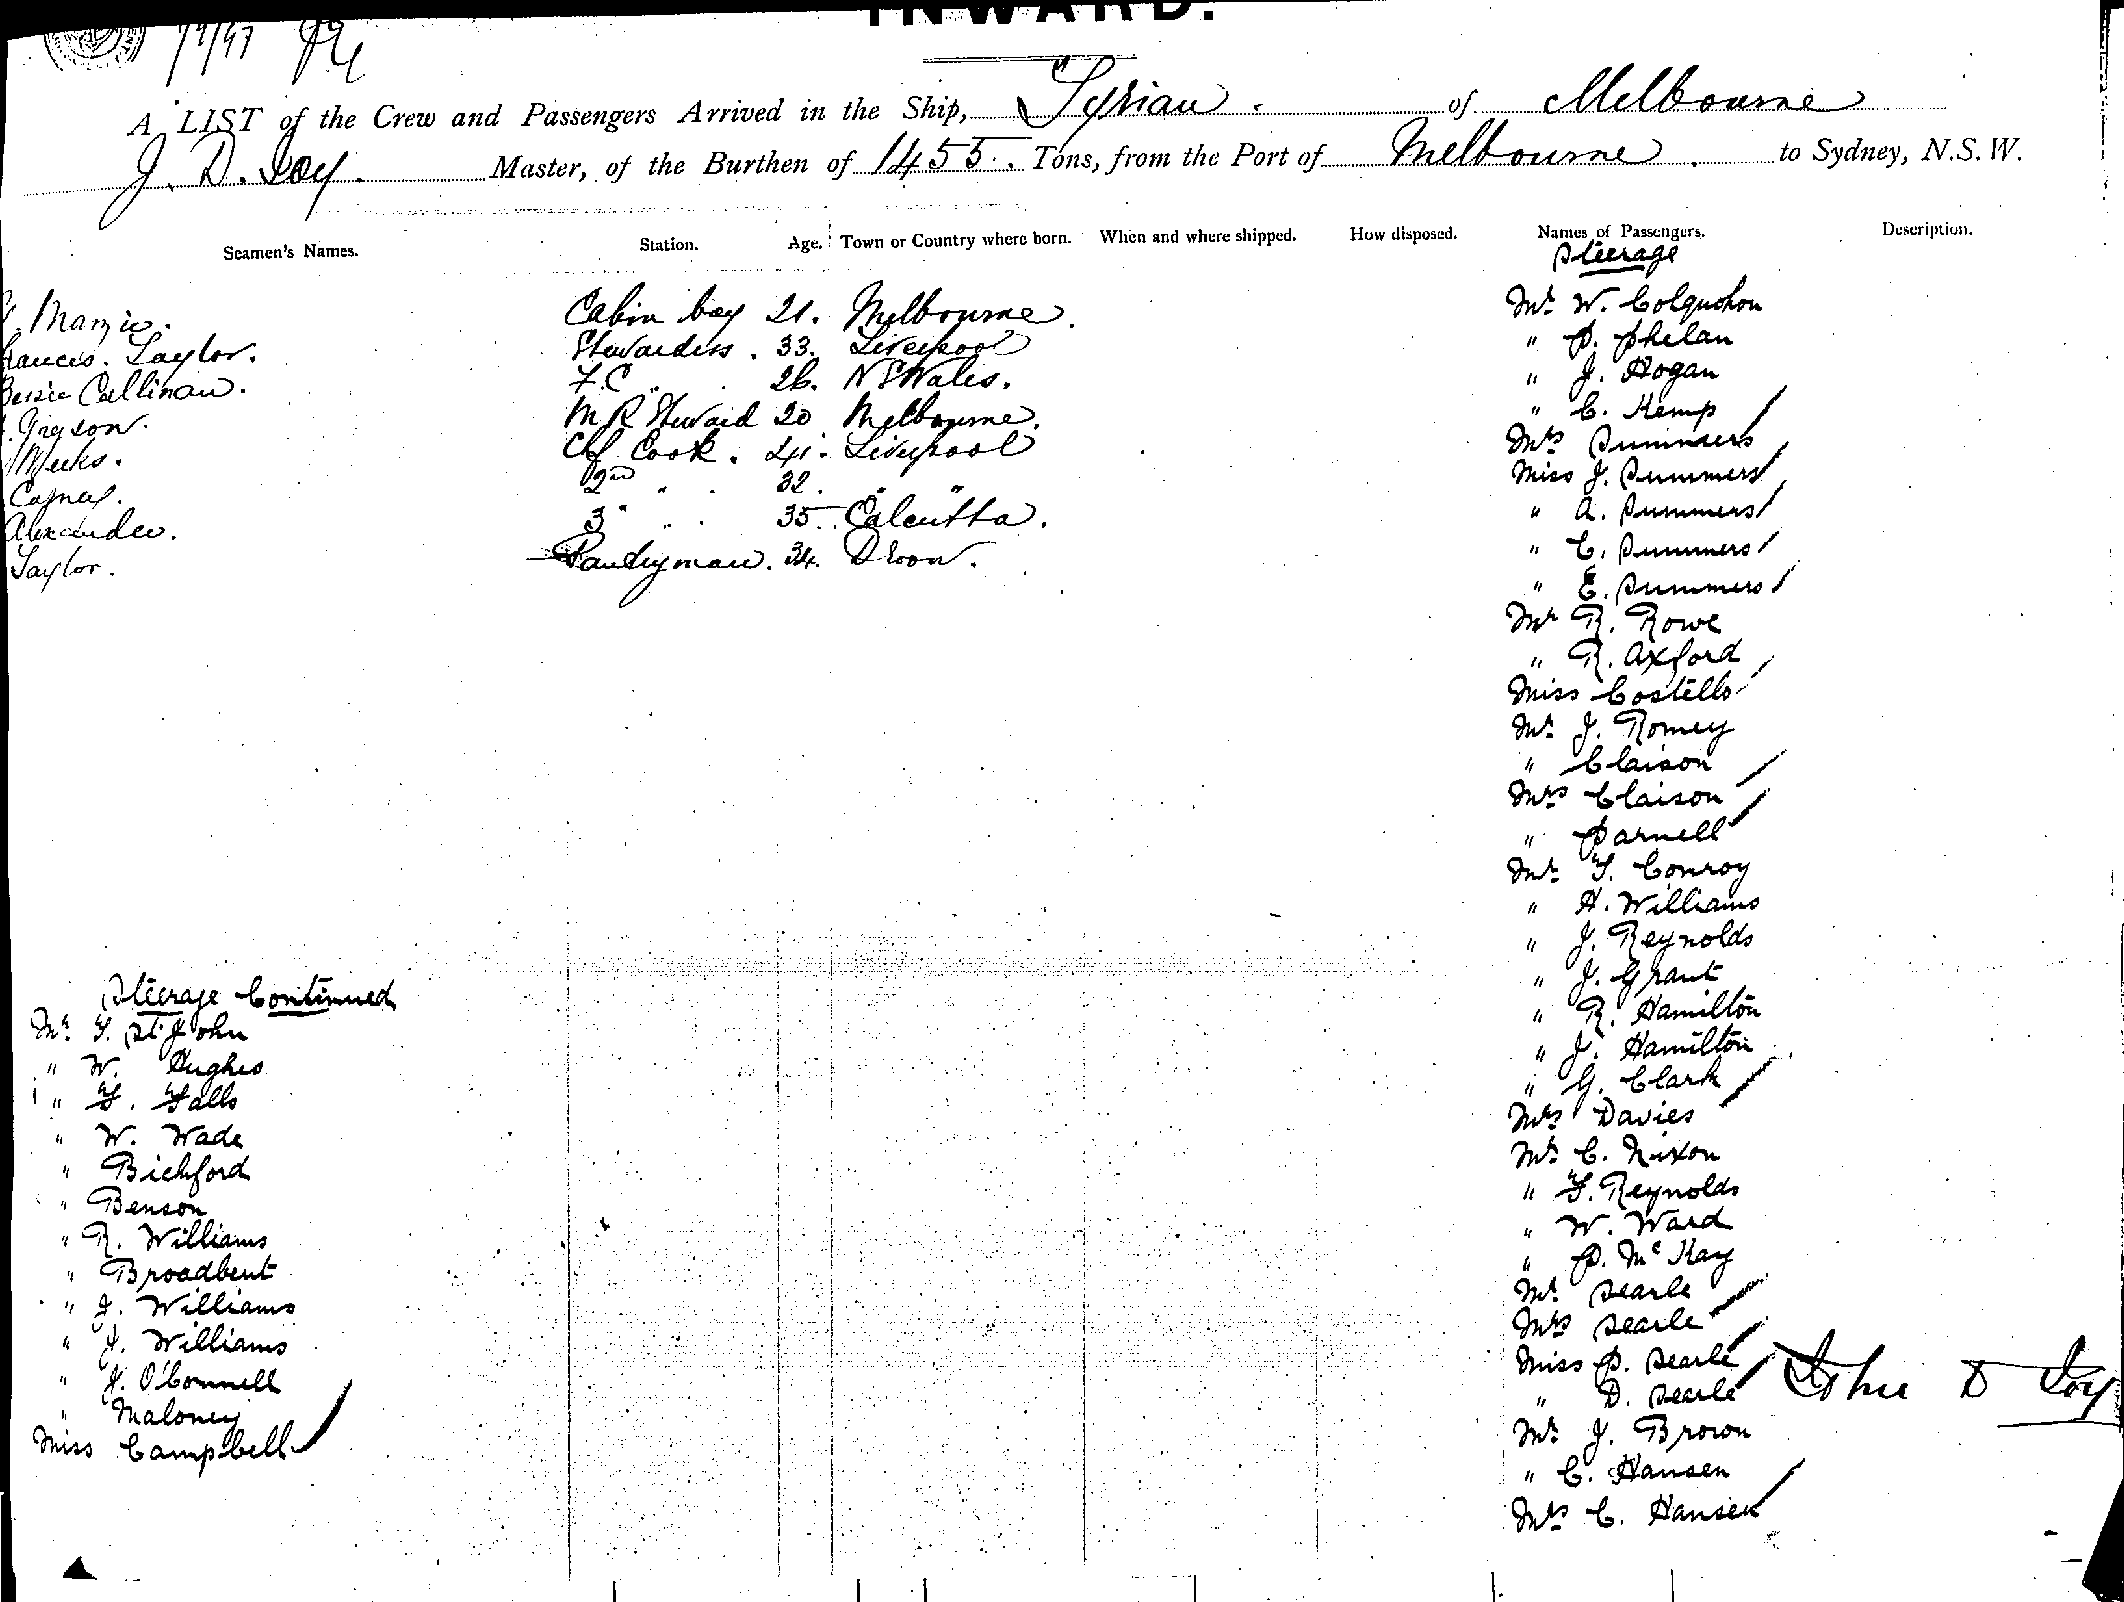 INWARD.
A LIST of the Crew and Passengers Arrived in the Ship, Syrian. of Melbourne
J. D. Joy. Master, of the Burthen of 1455. Tons, from the Port of Melbourne. to Sydney, N.S.W.
Seamen's Names. Station. Age. Town or Country where born. When and where shipped. How disposed. Names of Passengers. Description.
Steerage
Cabin boy 21. Melbourne.
rances. Taylor. Stewardess. 33. Liverpool
Bessie Callinan. F.C. " . 26. N S Wales.
M R Steward 20 Melbourne.
Meeks. Cf. Cook. 41. Liverpool
2nd " . 32. " "
Alexander. 3 " " . 35. Calcutta.
Taylor. Pantryman. 34. Devon.
Mr W. Colquohon
" P. Phelan
" J. Hogan
" C. Kemp
Mrs Summers
Miss J. Summers
" A. Summers
" C. Summers
" E. Summers
Mr R. Rowe
" R. Axford
Miss Costello
Mr J. Romey
" Claison
Mrs Claison
" Parnell
Mr T. Conroy
" H. Williams
" J. Reynolds
" J. Grant
" R. Hamilton
" J. Hamilton
" G. Clark
Mrs Davies
Mr C. Nixon
" F. Reynolds
" W. Ward
" P. McKay
Mr Searle
Mrs Searle
Miss P. Searle
" D. Searle
Mr J. Brown
" C. Hansen
Mrs C. Hansen
John D Joy
Steerage Continued
Mr T. St John
" W. Hughes
" F. Falls
" W. Wade
" Bickford
" Benson
" R. Williams
" Broadbent
" J. Williams
" J. Williams
" J. O'Connell
" Maloney
Miss Campbell